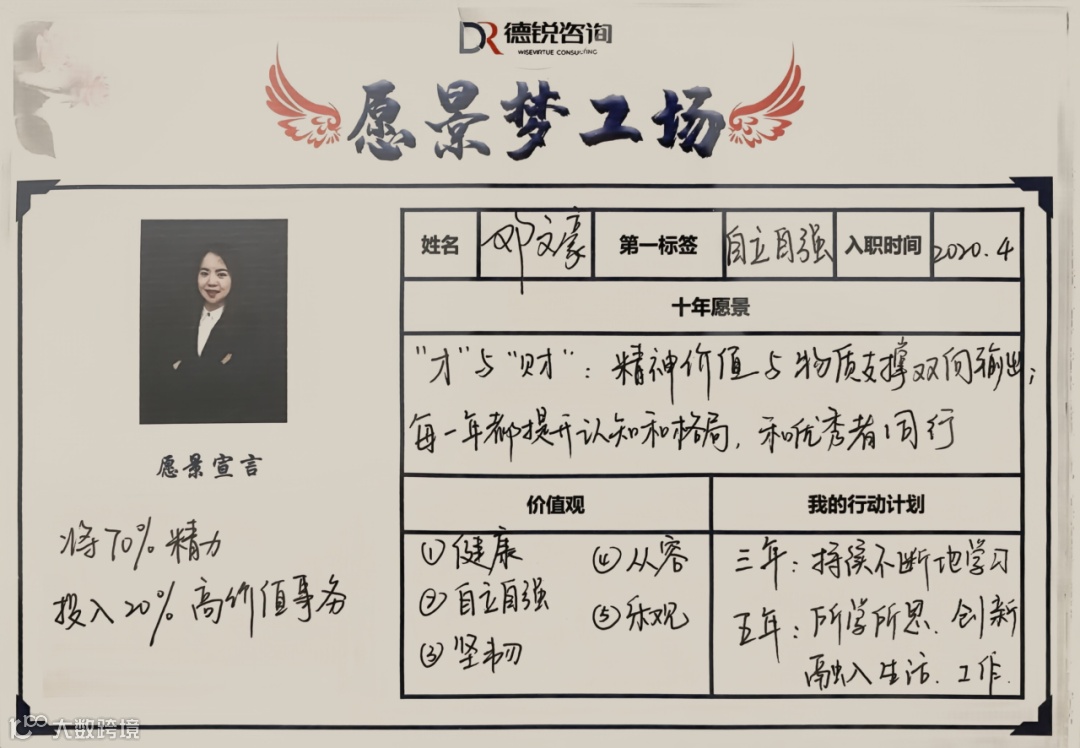 DR 德锐咨询
WISEVIRTUE CONSULTING
愿景梦工场
姓名 邓文豪 第一标签 自立自强 入职时间 2020.4
十年愿景
"才"与"财"：精神价值与物质支撑双向输出；
每一年都提升认知和格局，和优秀者同行
愿景宣言
将70%精力
投入20%高价值事务
价值观
①健康 ④从容
②自立自强 ⑤乐观
③坚韧
我的行动计划
三年：持续不断地学习
五年：所学所思、创新
融入生活、工作.
大数跨境